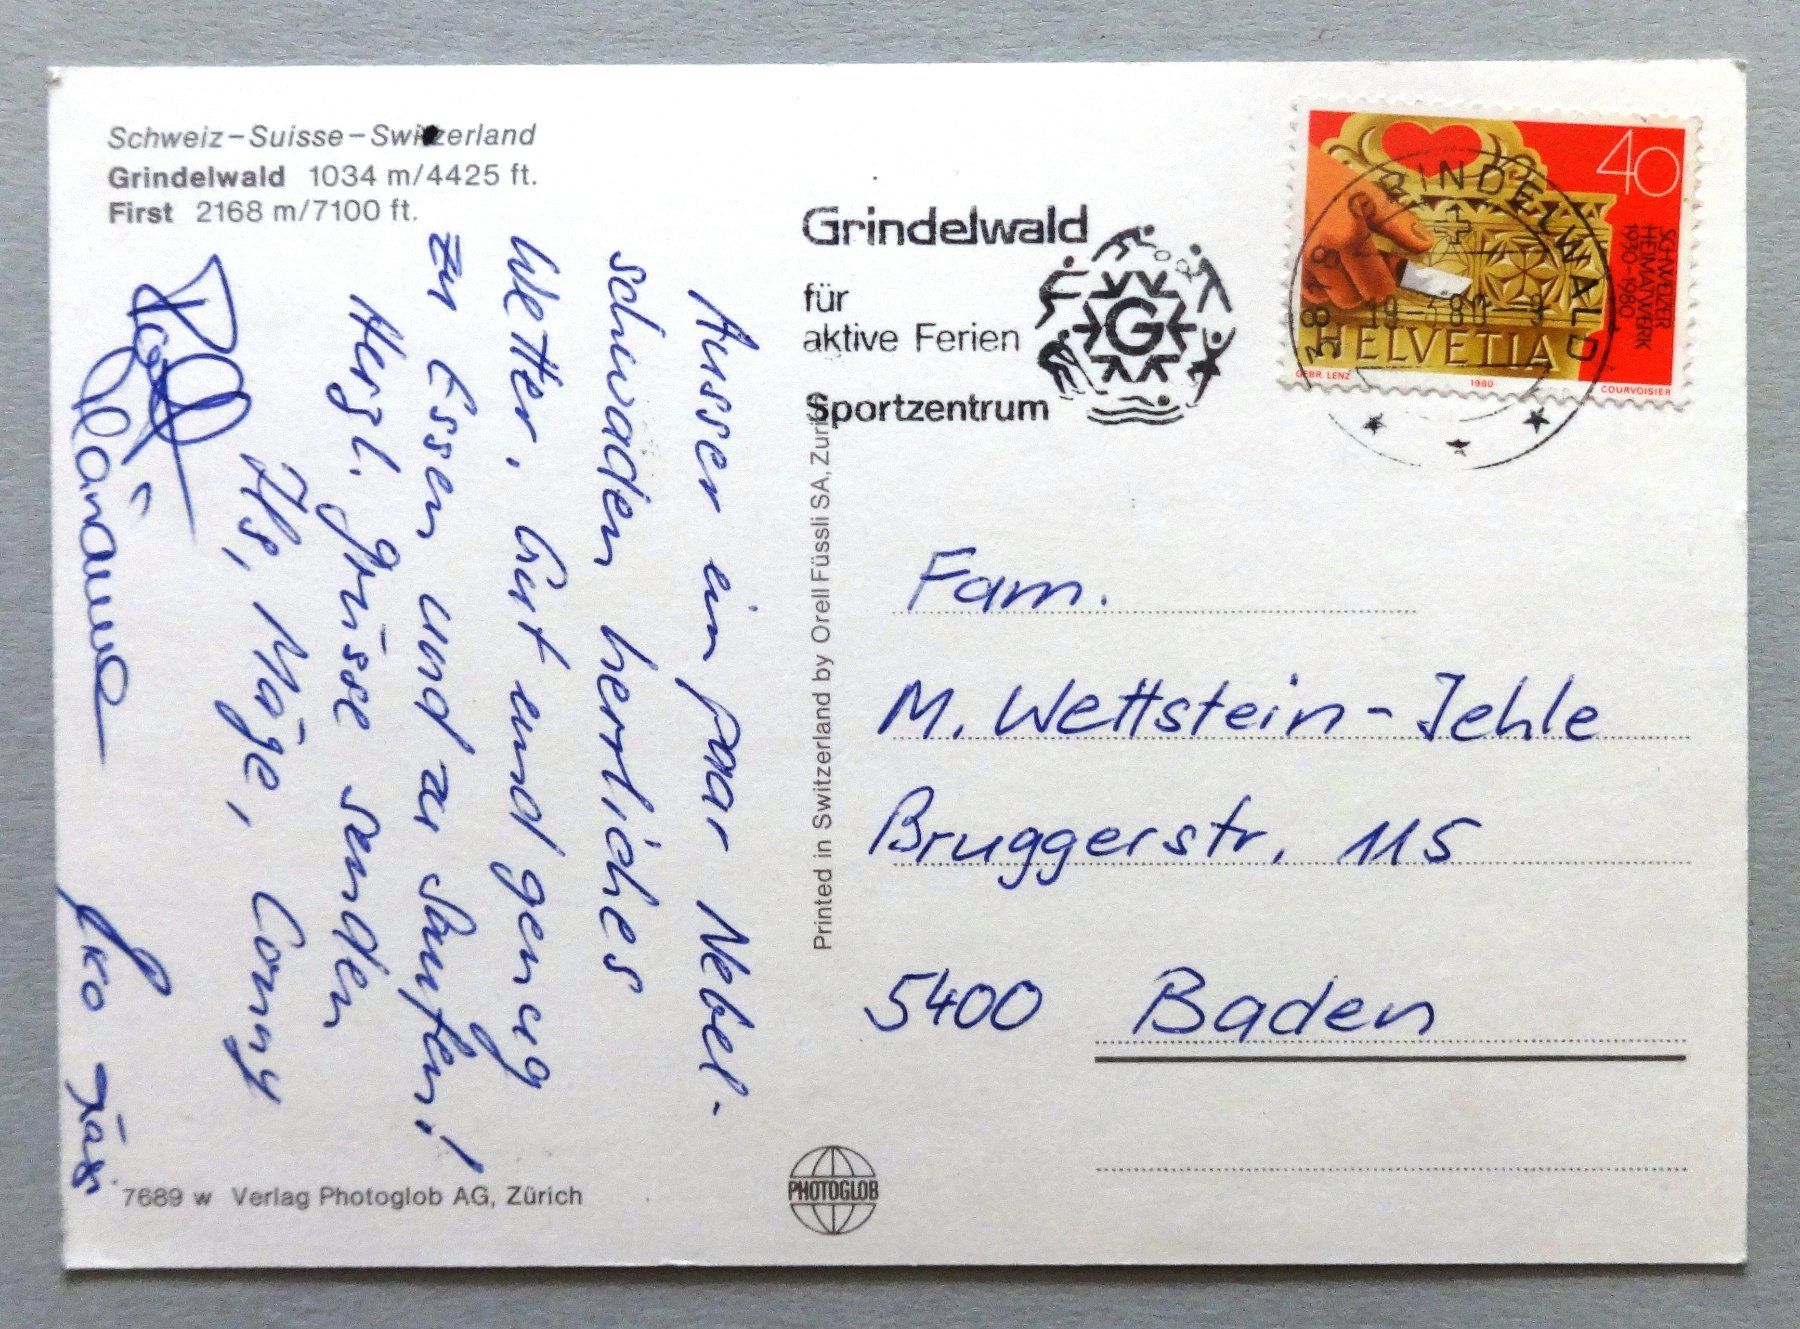 Schweiz–Suisse–Switzerland
Grindelwald 1034 m/4425 ft.
First 2168 m/7100 ft.
Ausser ein paar Nebel-
schwaden herrliches
Wetter. Gut und genug
zu Essen und zu Saufen!
Herzl. Grüsse senden
Ils, Mäge, Conny
Rolf
Marianne
7689 w Verlag Photoglob AG, Zürich
Printed in Switzerland by Orell Füssli SA, Zürich
PHOTOGLOB
Grindelwald
für
aktive Ferien
Sportzentrum
G
3818 GRINDELWALD
40
SCHWEIZER
HEIMATWERK
1970–1980
HELVETIA
GEBR. LENZ 1980 COURVOISIER
Fam.
M. Wettstein-Jehle
Bruggerstr. 115
5400 Baden